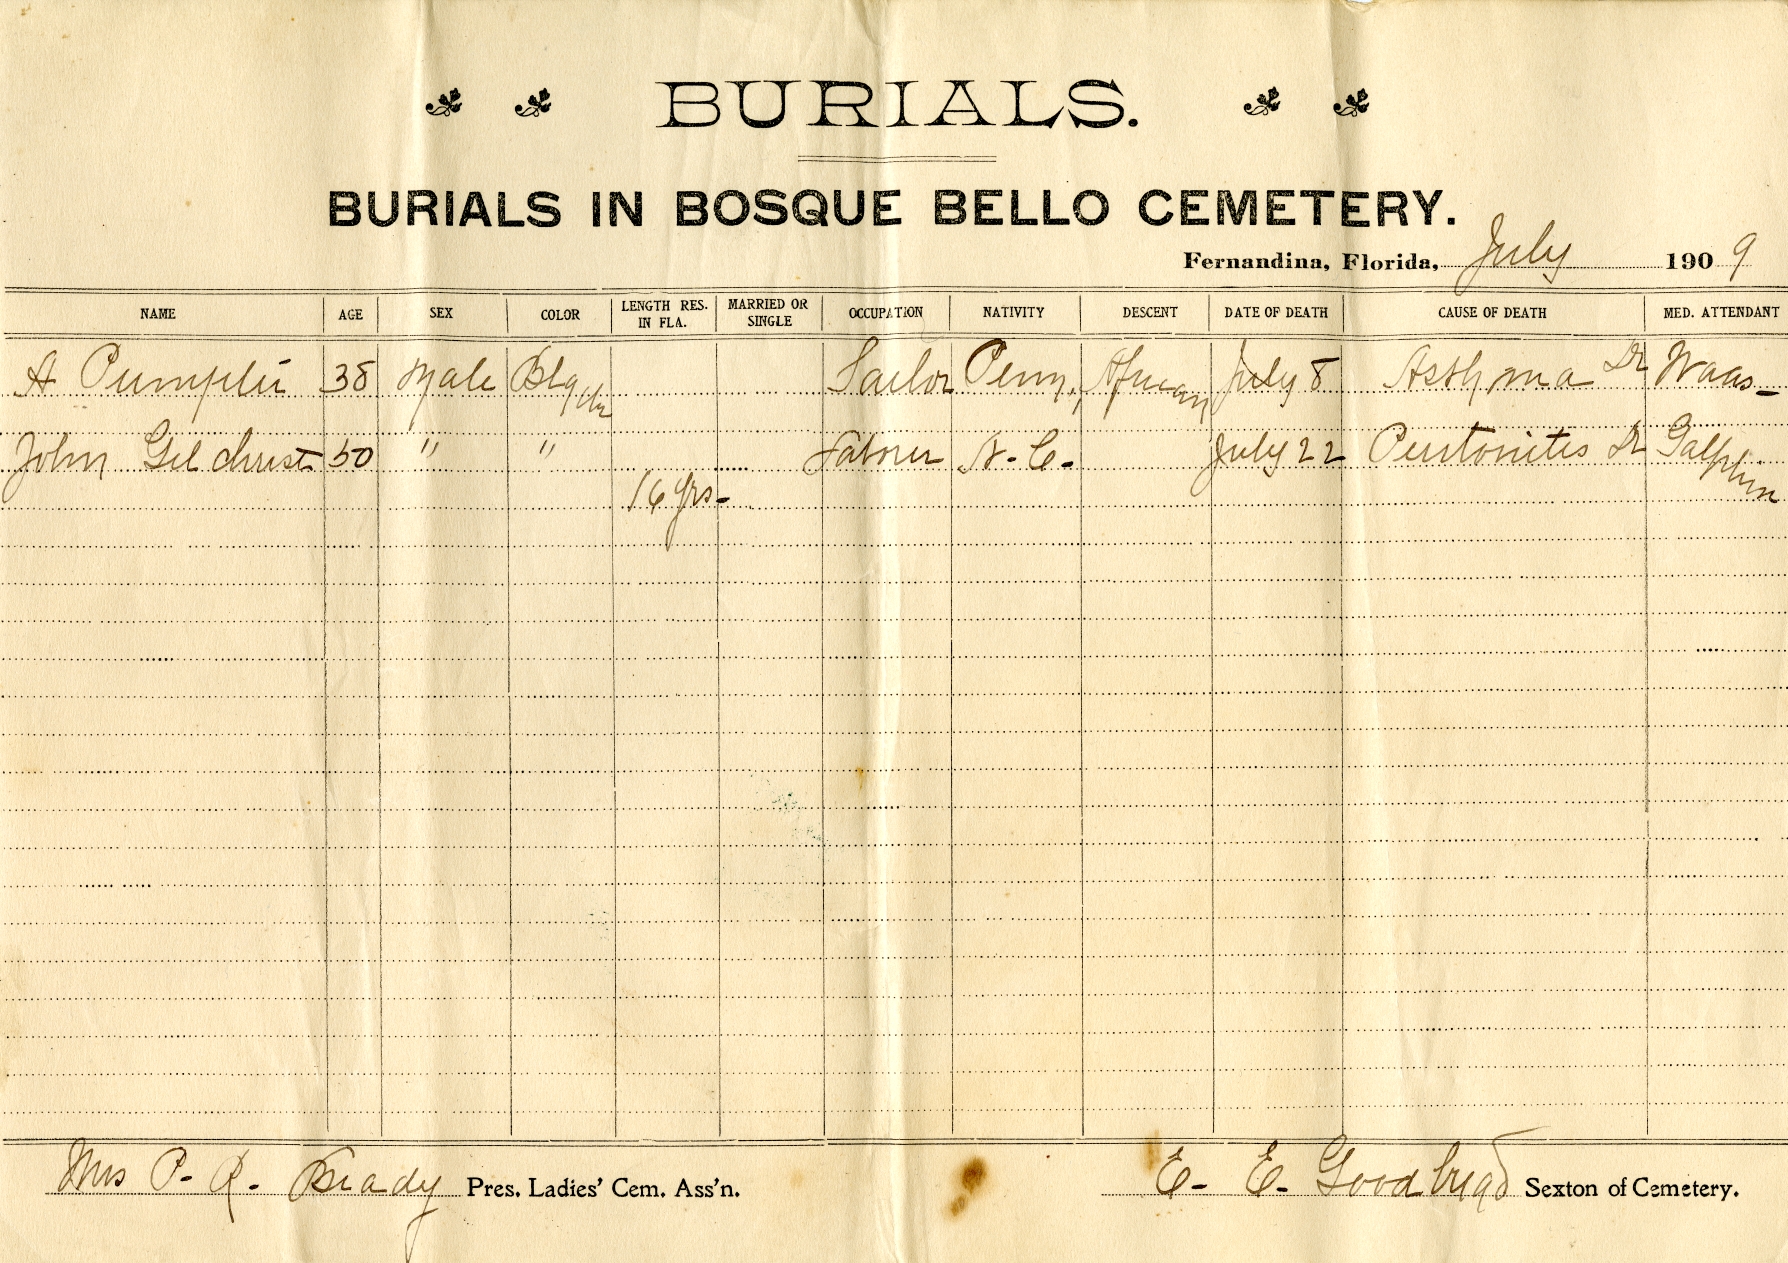 BURIALS.
BURIALS IN BOSQUE BELLO CEMETERY.
Fernandina, Florida, July 1909
NAME AGE SEX COLOR LENGTH RES. IN FLA. MARRIED OR SINGLE OCCUPATION NATIVITY DESCENT DATE OF DEATH CAUSE OF DEATH MED. ATTENDANT
A 38 Male Black Sailor Penn, African July 8 Asthma Dr Waas
John Gilchrist 50 " " Laborer N. C. July 22 Peritonites Dr Galphin
16 yrs
Mrs P. R. Brady Pres. Ladies' Cem. Ass'n.
E. E. Goodbread Sexton of Cemetery.